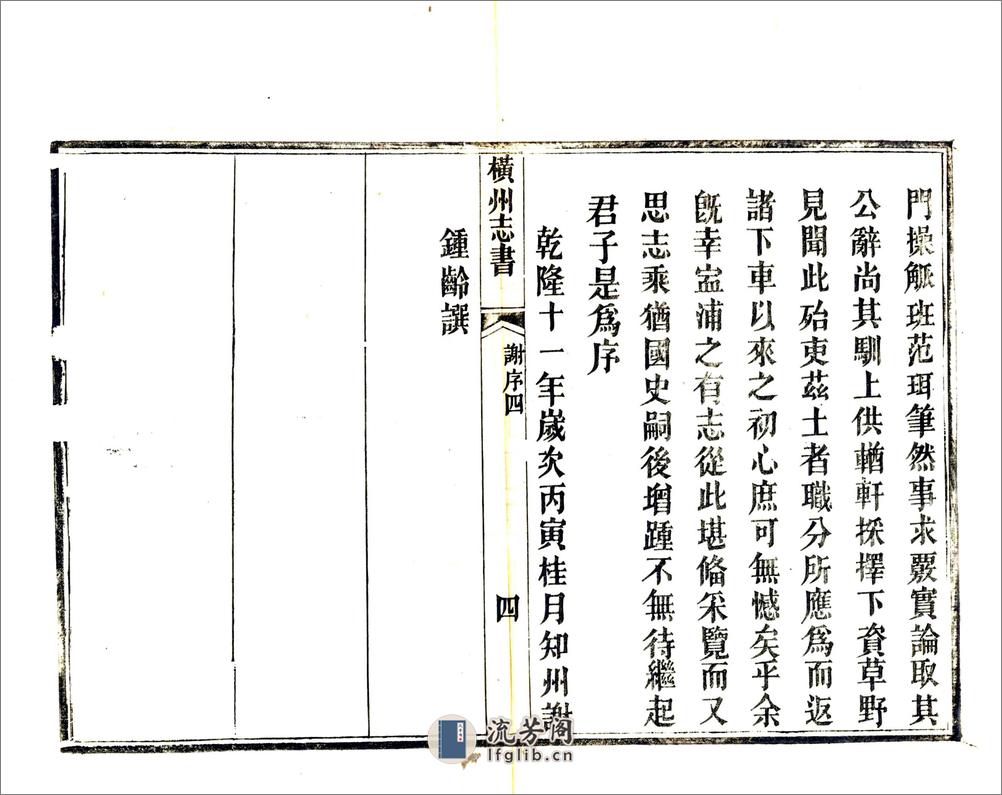 門操觚班范珥筆然事求覈實論取其
公辭尚其馴上供輶軒採擇下資草野
見聞此殆吏茲土者職分所應爲而返
諸下車以來之初心庶可無憾矣乎余
旣幸寍浦之有志從此堪俻采覽而又
思志乘猶國史嗣後增踵不無待繼起
君子是爲序
乾隆十一年歲次丙寅桂月知州謝
鍾齡譔
橫州志書
謝序四
四
流芳阁
lfglib.cn